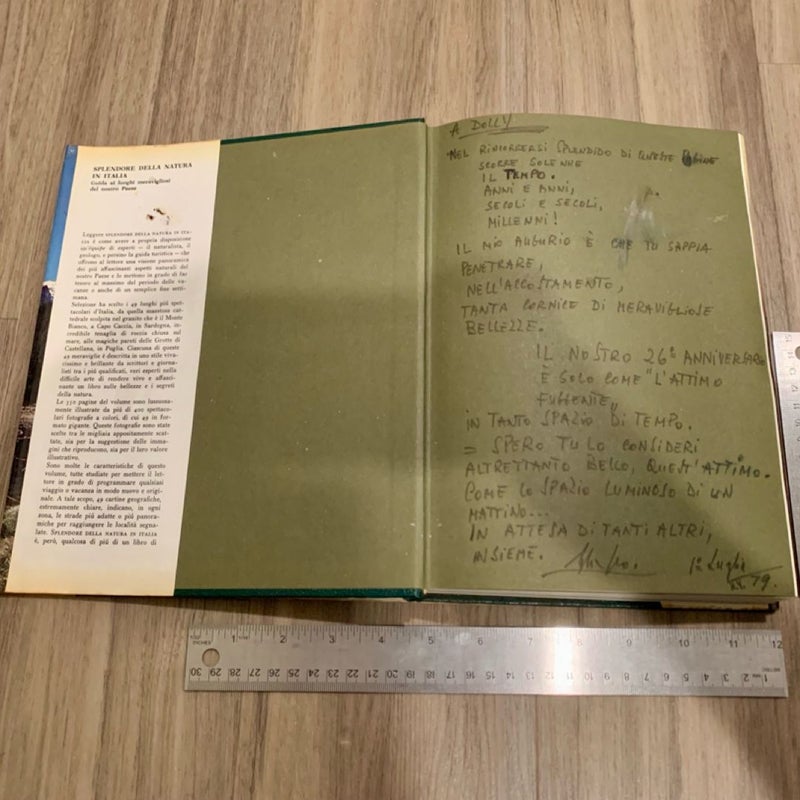 SPLENDORE DELLA NATURA
IN ITALIA
Guida ai lughi meravigliosi
del nostro Paese
Leggere SPLENDORE DELLA NATURA IN ITA-
LIA è come avere a propria disposizione
un'équipe di esperti — il naturalista, il
geologo, e persino la guida turistica — che
offrono al lettore una visione panoramica
dei più affascinanti aspetti naturali del
nostro Paese e lo mettono in grado di far
tesoro al massimo del periodo delle va-
canze o anche di un semplice fine setti-
mana.
Selezione ha scelto i 49 luoghi più spet-
tacolari d'Italia, da quella maestosa cat-
tedrale scolpita nel granito che è il Monte
Bianco, a Capo Caccia, in Sardegna, in-
credibile tenaglia di roccia chiusa sul
mare, alle magiche pareti delle Grotte di
Castellana, in Puglia. Ciascuna di queste
49 meraviglie è descritta in uno stile viva-
cissimo e brillante da scrittori e giorna-
listi tra i più qualificati, veri esperti nella
difficile arte di rendere vivo e affasci-
nante un libro sulle bellezze e i segreti
della natura.
Le 550 pagine del volume sono lussuosa-
mente illustrate da più di 400 spettaco-
lari fotografie a colori, di cui 49 in for-
mato gigante. Queste fotografie sono state
scelte tra le migliaia appositamente scat-
tate, sia per la suggestione delle imma-
gini che riproducono, sia per il loro valore
illustrativo.
Sono molte le caratteristiche di questo
volume, tutte studiate per mettere il let-
tore in grado di programmare qualsiasi
viaggio o vacanza in modo nuovo e origi-
nale. A tale scopo, 49 cartine geografiche,
estremamente chiare, indicano, in ogni
zona, le strade più adatte o più panora-
miche per raggiungere le località segna-
late. SPLENDORE DELLA NATURA IN ITALIA
è, però, qualcosa di più di un libro di
A DOLLY
"NEL RINCORRERSI SPLENDIDO DI QUESTE PAGINE
SCORRE SOLENNE
IL TEMPO.
ANNI E ANNI,
SECOLI E SECOLI,
MILLENNI!
IL MIO AUGURIO È CHE TU SAPPIA
PENETRARE,
NELL'ACCOSTAMENTO,
TANTA CORNICE DI MERAVIGLIOSE
BELLEZZE.
IL NOSTRO 26° ANNIVERSARIO
È SOLO COME "L'ATTIMO
FUGGENTE"
IN TANTO SPAZIO DI TEMPO.
= SPERO TU LO CONSIDERI
ALTRETTANTO BELLO, QUEST'ATTIMO.
COME LO SPAZIO LUMINOSO DI UN
MATTINO...
IN ATTESA DI TANTI ALTRI,
INSIEME.
1° Luglio
79.
INCHES 1 2 3 4 5 6 7 8 9 10 11 12
30 29 28 27 26 25 24 23 22 21 20 19 18 17 16 15 14 13 12 11 10 9 8 7 6 5 4 3 2 1